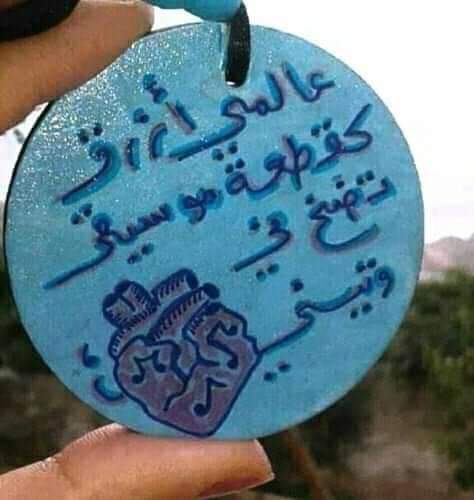 عالمي أزرق
كقطعة موسيقى
تضخ في
وتيني